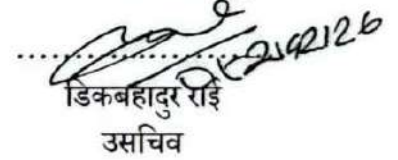 डिकबहादुर राई
उसचिव